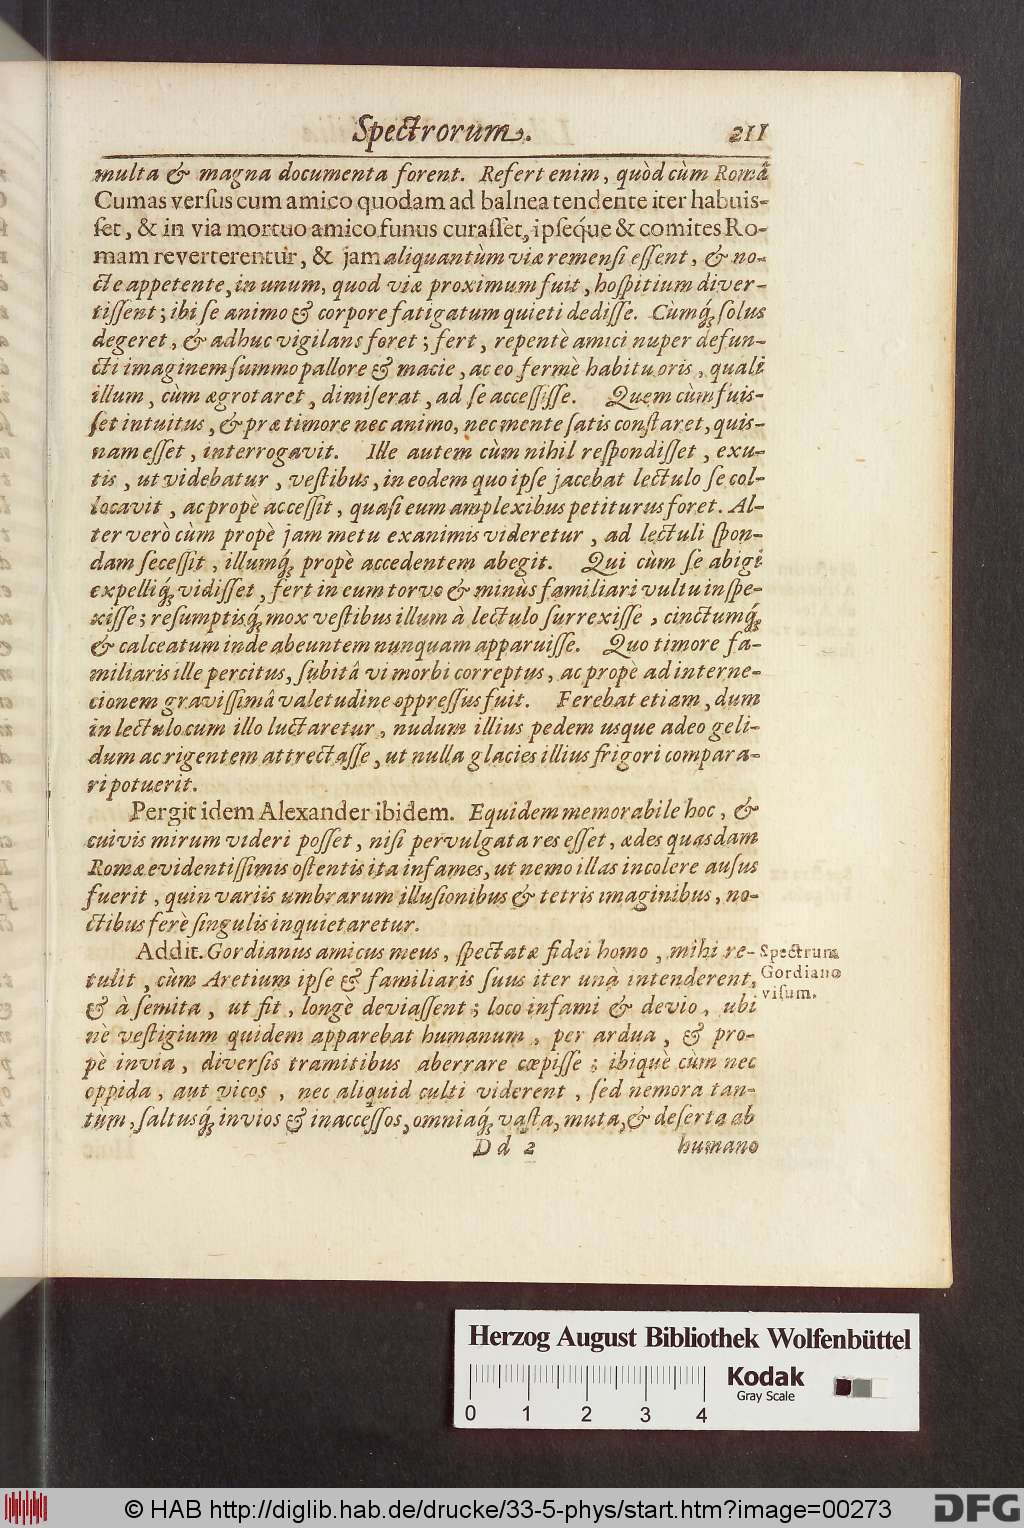 Spectrorum. 211
multa & magna documenta forent. Refert enim, quòd cùm Româ
Cumas verſus cum amico quodam ad balnea tendente iter habuiſ-
ſet, & in via mortuo amico funus curaſſet, ipſeq́ue & comites Ro-
mam reverterentur, & jam aliquantùm viæ remenſi eſſent, & no-
cte appetente, in unum, quod viæ proximum fuit, hoſpitium diver-
tiſſent; ibi ſe animo & corpore fatigatum quieti dediſſe. Cùmq́; ſolus
degeret, & adhuc vigilans foret; fert, repentè amici nuper defun-
cti imaginem ſummo pallore & macie, ac eo fermè habitu oris, quali
illum, cùm ægrotaret, dimiſerat, ad ſe acceſſiſſe. Quem cùm fuiſ-
ſet intuitus, & præ timore nec animo, nec mente ſatis conſtaret, quiſ-
nam eſſet, interrogavit. Ille autem cùm nihil reſpondiſſet, exu-
tis, ut videbatur, veſtibus, in eodem quo ipſe jacebat lectulo ſe col-
locavit, ac propè acceſſit, quaſi eum amplexibus petiturus foret. Al-
ter verò cùm propè jam metu exanimis videretur, ad lectuli ſpon-
dam ſeceſſit, illumq́; propè accedentem abegit. Qui cùm ſe abigi
expelliq́; vidiſſet, fert in eum torvo & minùs familiari vultu inſpe-
xiſſe; reſumptisq́; mox veſtibus illum à lectulo ſurrexiſſe, cinctumq́;
& calceatum inde abeuntem nunquam apparuiſſe. Quo timore fa-
miliaris ille percitus, ſubitâ vi morbi correptus, ac propè ad interne-
cionem graviſſimâ valetudine oppreſſus fuit. Ferebat etiam, dum
in lectulo cum illo luctaretur, nudum illius pedem usque adeo geli-
dum ac rigentem attrectaſſe, ut nulla glacies illius frigori compara-
ri potuerit.
Pergit idem Alexander ibidem. Equidem memorabile hoc, &
cuivis mirum videri poſſet, niſi pervulgata res eſſet, ædes quasdam
Romæ evidentiſſimis oſtentis ita infames, ut nemo illas incolere auſus
fuerit, quin variis umbrarum illuſionibus & tetris imaginibus, no-
ctibus ferè ſingulis inquietaretur.
Addit. Gordianus amicus meus, ſpectatæ fidei homo, mihi re-
Spectrum
tulit, cùm Aretium ipſe & familiaris ſuus iter unà intenderent,
Gordiano
& à ſemita, ut fit, longè deviaſſent; loco infami & devio, ubi
viſum.
nè veſtigium quidem apparebat humanum, per ardua, & pro-
pè invia, diverſis tramitibus aberrare cœpiſſe; ibiquè cùm nec
oppida, aut vicos, nec aliquid culti viderent, ſed nemora tan-
tùm, ſaltusq́; invios & inacceſſos, omniaq́; vaſta, muta, & deſerta ab
D d 2 humano
Herzog August Bibliothek Wolfenbüttel
Kodak
Gray Scale
0 1 2 3 4
© HAB http://diglib.hab.de/drucke/33-5-phys/start.htm?image=00273
DFG